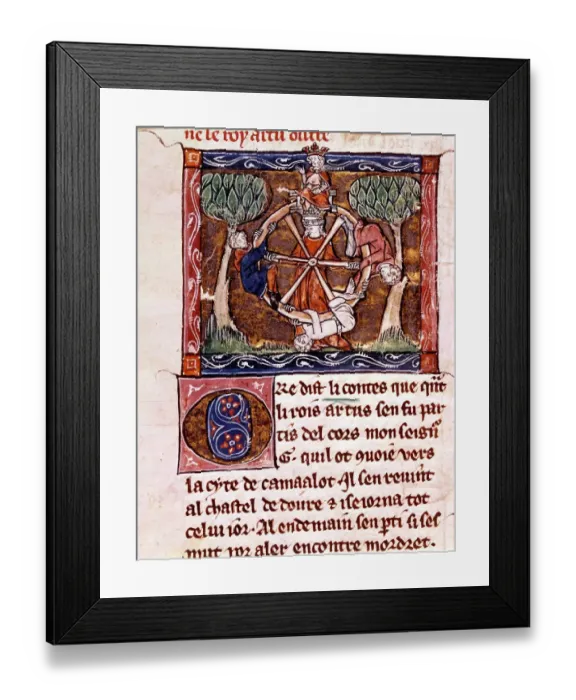 ne le roy artu oultre
Ore dist li contes que q̃nt
li rois artus sen fu par
tis del cors monseign̄
G. quil ot 9uoie vers
la cyte de camaalot. Il sen reuint
al chastel de doure & iseiorna tot
celui ior. Al endemain sen pti si ses
mut por aler encontre mordret.